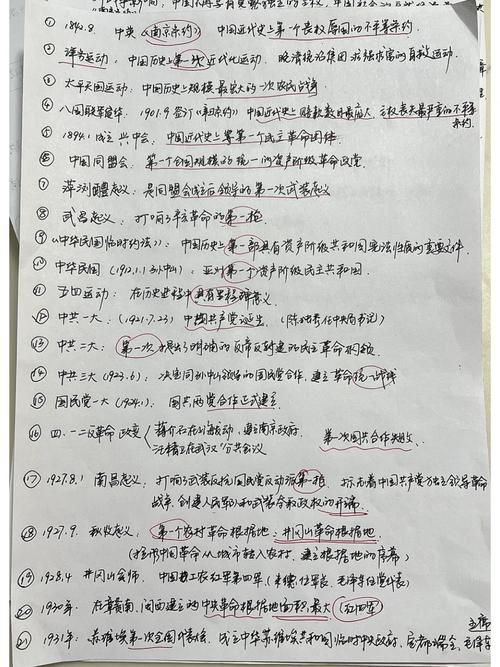 ① 1842.8. 中英《南京条约》 中国近代史上第一个丧权辱国的不平等条约.
② 洋务运动: 中国历史上第一次近代化运动. 晚清统治集团求强求富的自救运动.
③ 太平天国运动: 中国历史上规模最宏大的一次农民战争
④ 八国联军侵华: 1901.9 签订《辛丑条约》中国近代史上赔款数目最庞大、主权丧失最严重的不平等
条约.
⑤ 1894.1 成立 兴中会. 中国近代史上第一个民主革命团体.
⑥ 中国同盟会. 第一个全国规模的统一的资产阶级革命政党.
⑦ 萍浏醴起义: 是同盟会成立后领导的第一次武装起义
⑧ 武昌起义: 打响了辛亥革命的第一枪
⑨ 《中华民国临时约法》: 中国历史上第一部具有资产阶级共和国宪法性质的重要文件.
⑩ 中华民国 (1912.1.1 孙中山): 亚洲第一个资产阶级民主共和国.
⑪ 五四运动: 在历史进程中具有里程碑意义.
⑫ 中共一大: (1921.7.23) 中国共产党诞生. (陈独秀任中央局书记)
⑬ 中共二大: 第一次提出了明确的反帝反封建的民主革命纲领.
⑭ 中共三大 (1923.6): 决定同孙中山领导的国民党合作, 建立革命统一战线
⑮ 国民党一大 (1924.1): 国共两党合作正式建立.
⑯ 四·一二反革命政变 蒋介石在上海发动, 建立南京政府.
汪精卫在武汉"分共会议" 第一次国共合作失败.
⑰ 1927.8.1 南昌起义. 打响了武装反抗国民党反动派第一枪. 标志着中国共产党独立领导革命
战争. 创建人民军队和武装夺取政权的开端.
⑱ 1927.9. 秋收起义: 第一个农村革命根据地: 井冈山革命根据地.
(标志中国革命从城市转入农村. 建立根据地的序幕)
⑲ 1928.4 井冈山会师. 中国工农红军第四军 (朱德任军长, 毛泽东任党代表)
⑳ 1930年. 在赣南、闽西建立的中央革命根据地面积最大
主席
㉑ 1931年. 苏维埃第一次全国代表大会. 成立中华苏维埃共和国临时中央政府. 定都瑞金. 毛泽东